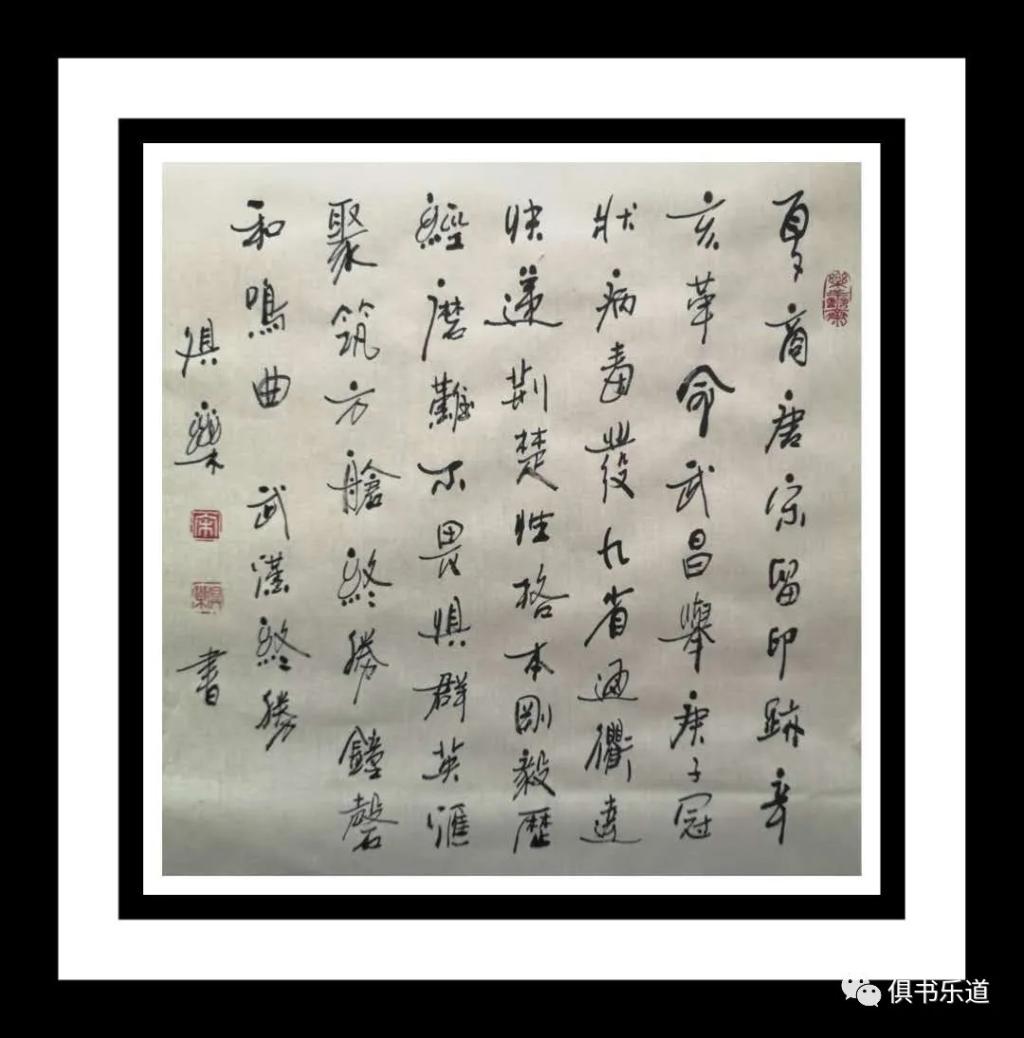 夏商唐宗留印跡辛
亥革命武昌舉庚子冠
狀病毒發九省通衢達
快遞荊楚性格本剛毅歷
經磨難不畏懼群英匯
聚筑方艙終勝鐘磬
和鳴曲 武漢終勝
俱樂
書
俱书乐道